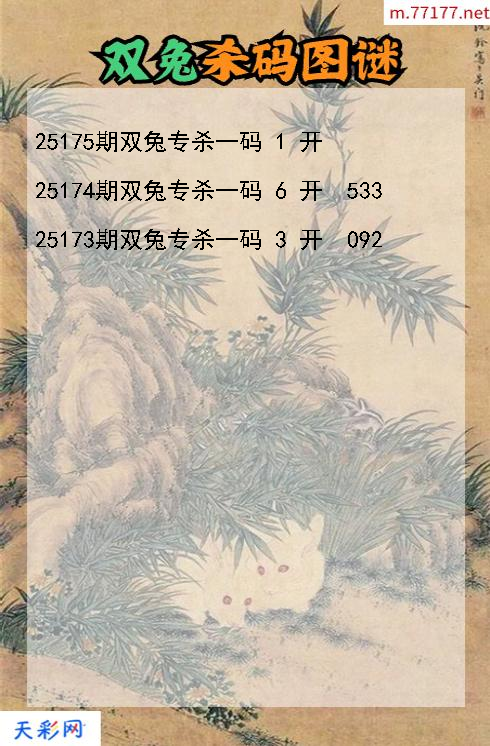 m.77177.net
双兔杀码图谜
25175期双兔专杀一码 1 开
25174期双兔专杀一码 6 开 533
25173期双兔专杀一码 3 开 092
天彩网